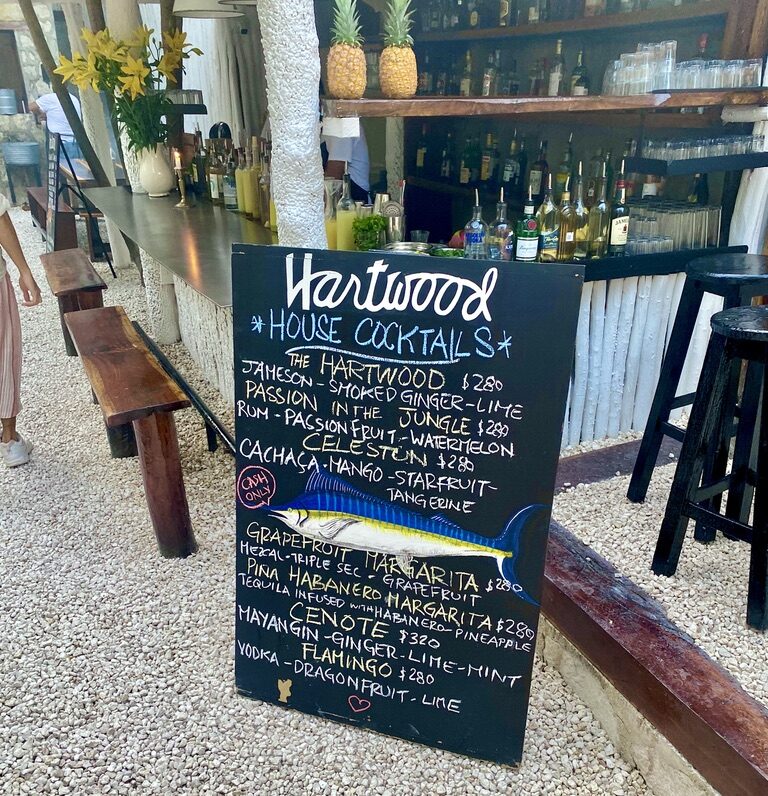 Hartwood
*HOUSE COCKTAILS*
THE HARTWOOD $280
JAMESON - SMOKED GINGER - LIME
PASSION IN THE JUNGLE $280
RUM - PASSIONFRUIT - WATERMELON
CELESTÚN $280
CACHAÇA - MANGO - STARFRUIT -
TANGERINE
CASH
ONLY
GRAPEFRUIT MARGARITA $280
MEZCAL - TRIPLE SEC - GRAPEFRUIT
PIÑA HABANERO MARGARITA $280
TEQUILA INFUSED WITH HABANERO - PINEAPPLE
CENOTE $320
MAYANGIN - GINGER - LIME - MINT
FLAMINGO $280
VODKA - DRAGONFRUIT - LIME